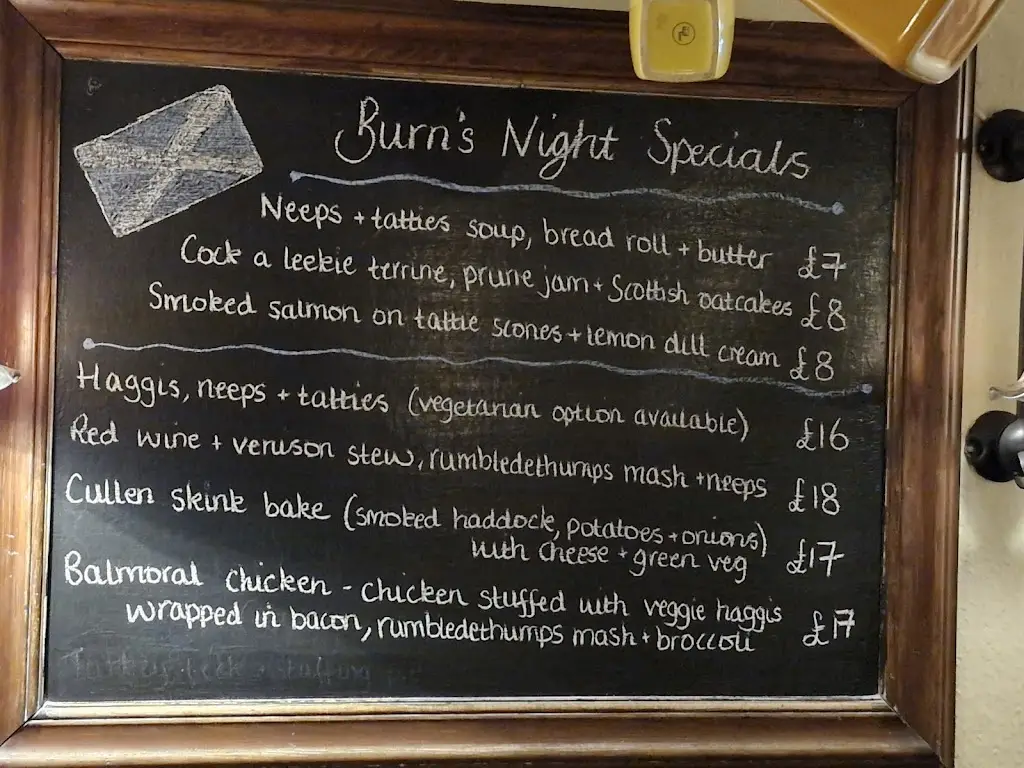 Burn's Night Specials
Neeps + tatties soup, bread roll + butter £7
Cock a leekie terrine, prune jam + Scottish oatcakes £8
Smoked salmon on tattie scones + lemon dill cream £8
Haggis, neeps + tatties (vegetarian option available) £16
Red wine + venison stew, rumbledethumps mash + neeps £18
Cullen skink bake (smoked haddock, potatoes + onions)
with cheese + green veg £17
Balmoral chicken - chicken stuffed with veggie haggis
wrapped in bacon, rumbledethumps mash + broccoli £17